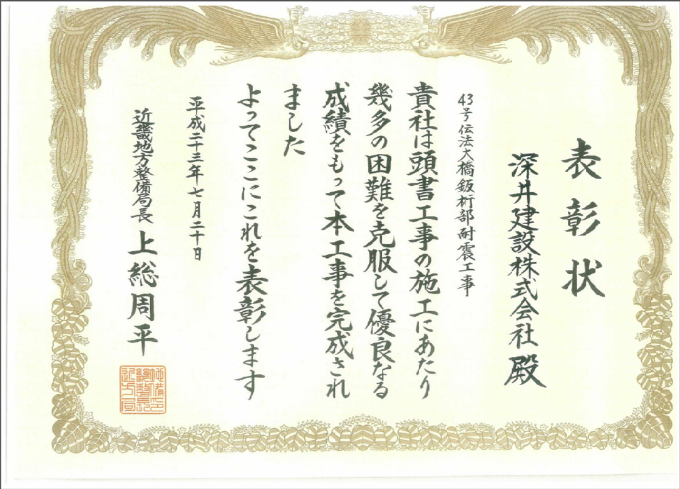 表彰状
深井建設株式会社 殿
43号伝法大橋鈑桁部耐震工事
貴社は頭書工事の施工にあたり
幾多の困難を克服して優良なる
成績をもって本工事を完成され
ました
よってここにこれを表彰します
平成二十三年七月二十日
近畿地方整備局長 上総周平